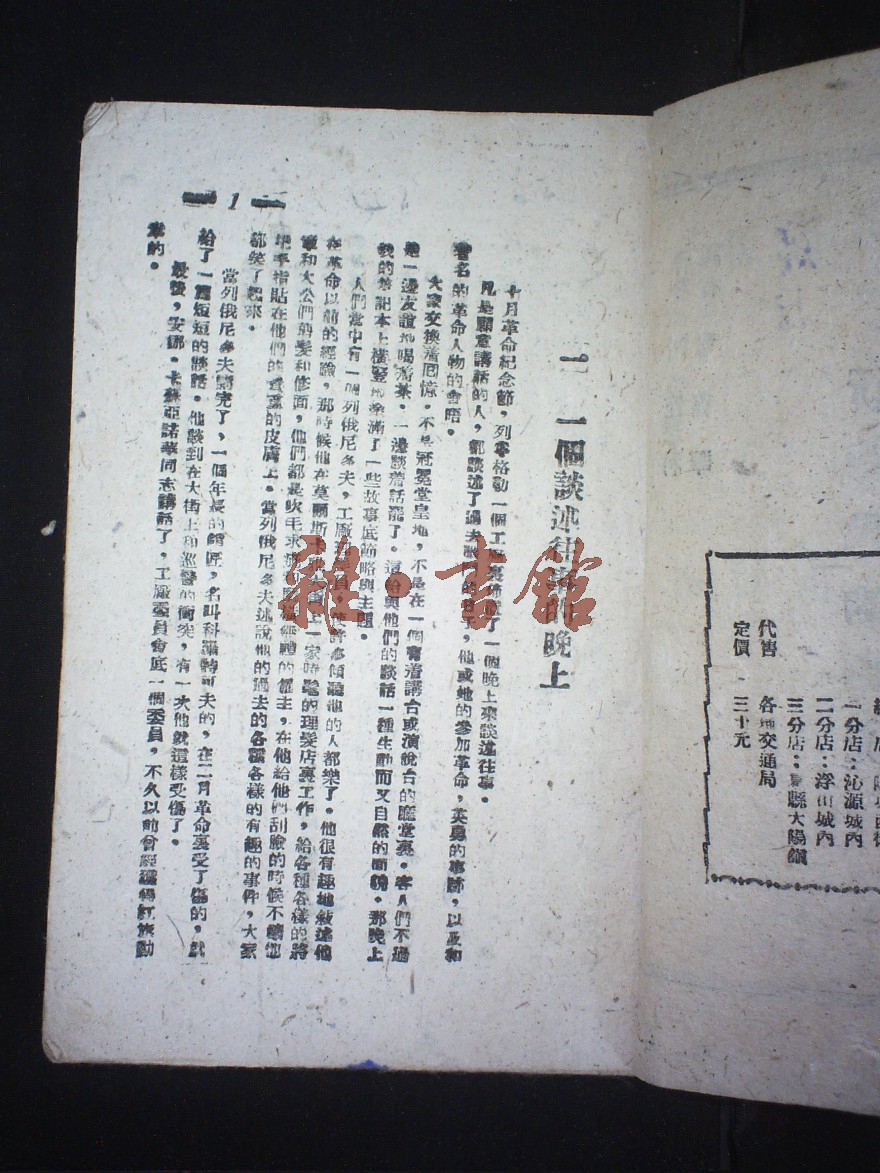 一 一個談述往事的晚上
十月革命紀念節，列寧格勒一個工廠裏佈置了一個晚上來談述往事。
凡是願意講話的人，都談述了過去的日子，他或她的參加革命，英勇的事蹟，以及和
著名的革命人物的會晤。
大家交換着回憶，不是冠冕堂皇地，不是在一個有着講台或演說台的廳堂裏。客人們不過
是一邊友誼地喝着茶，一邊談着話罷了。這給與他們的談話一種生動而又自然的面貌。那晚上
我的筆記本上橫豎地塗滿了一些故事底節略與主題。
人們當中有一個列俄尼多夫，工廠 傾聽他的人都樂了。他很有趣地敍述他
在革命以前的經驗，那時候他在莫爾斯卡 上一家時髦的理髮店裏工作，給各種各樣的將
軍和大公們剪髮和修面，他們都是吹毛求疵 的僱主，在他給他們刮臉的時候不讓他
把手指貼在他們的貴重的皮膚上。當列俄尼多夫述說他的過去的各種各樣的有趣的事件，大家
都笑了起來。
當列俄尼多夫講完了，一個年長的 匠，名叫科羅特可夫的，在二月革命裏受了傷的，就
給了一篇短短的談話。他談到在大街上和巡警的衝突，有一次他就這樣受傷了。
最後，安娜·卡蘇亞諾華同志講話了，工廠委員會底一個委員，不久以前曾經 得紅旗勳
章的。
1
一分店：沁源城內
二分店：浮山城內
三分店： 縣大陽鎮
代售 各地交通局
定價 三十元
雜·書館